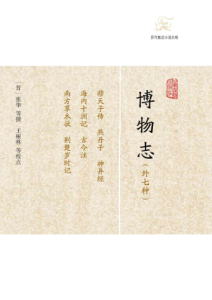 历代笔记小说大观
博物志（外七种）
穆天子传 燕丹子 神异经
海内十洲记 古今注
南方草木状 荆楚岁时记
［晋］张华 等撰 王根林 等校点